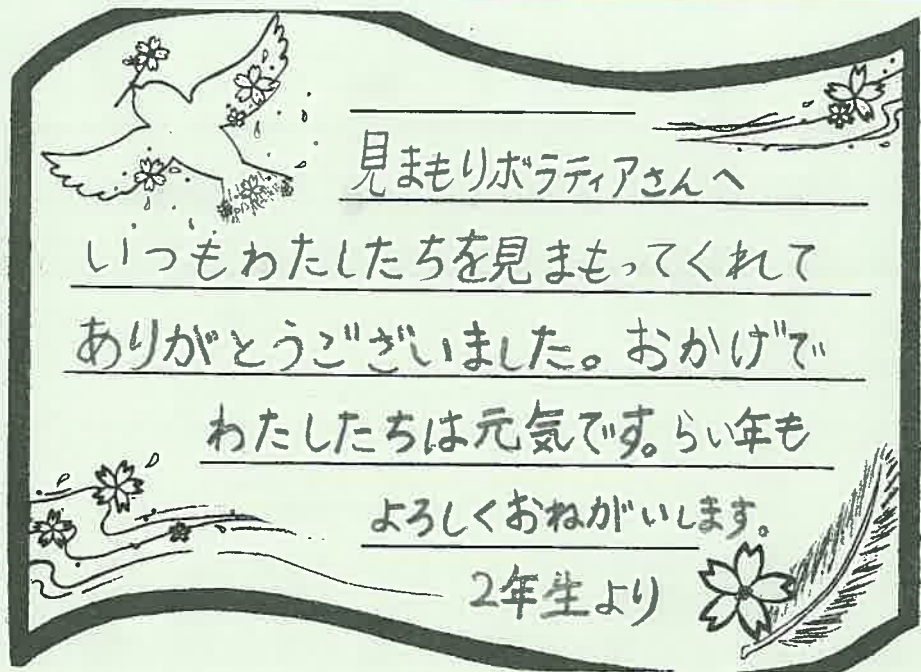 見まもりボラティアさんへ
いつもわたしたちを見まもってくれて
ありがとうございました。おかげで
わたしたちは元気です。らい年も
よろしくおねがいします。
2年生より